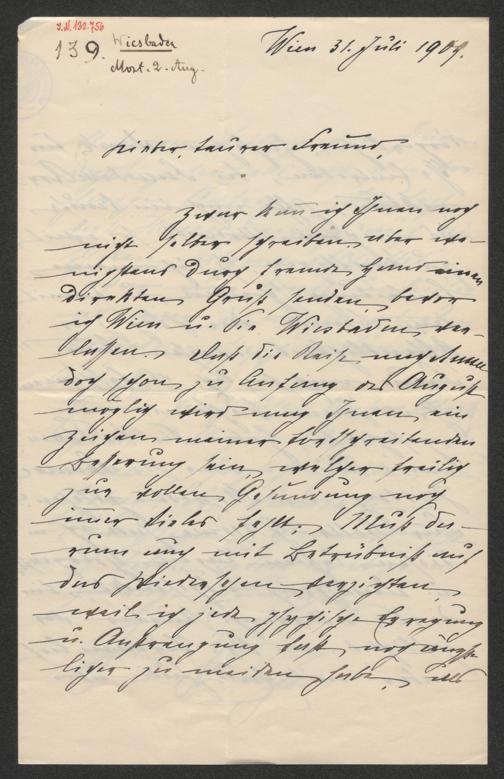 J.N. 132.756
139. Wiesbaden
Mont. 2. Aug.
Wien 31. Juli 1909.
Lieber, teurer Freund,
Zwar kann ich Ihnen noch
nicht selber schreiben, aber we-
nigstens durch fremde Hand einen
direkten Gruß senden, bevor
ich Wien u. Sie Wiesbaden ver-
lassen. Daß die Reise nach
doch schon zu Anfang des August
möglich wird mag Ihnen ein
Zeichen meiner fortschreitenden
Besserung sein, welcher freilich
zur vollen Gesundung noch
immer vieles fehlt. Muß da-
rum auch mit Betrübniß auf
das Wiedersehen verzichten,
weil ich jede psychische Erregung
u. Anstrengung fast noch ängst-
licher zu meiden habe, als